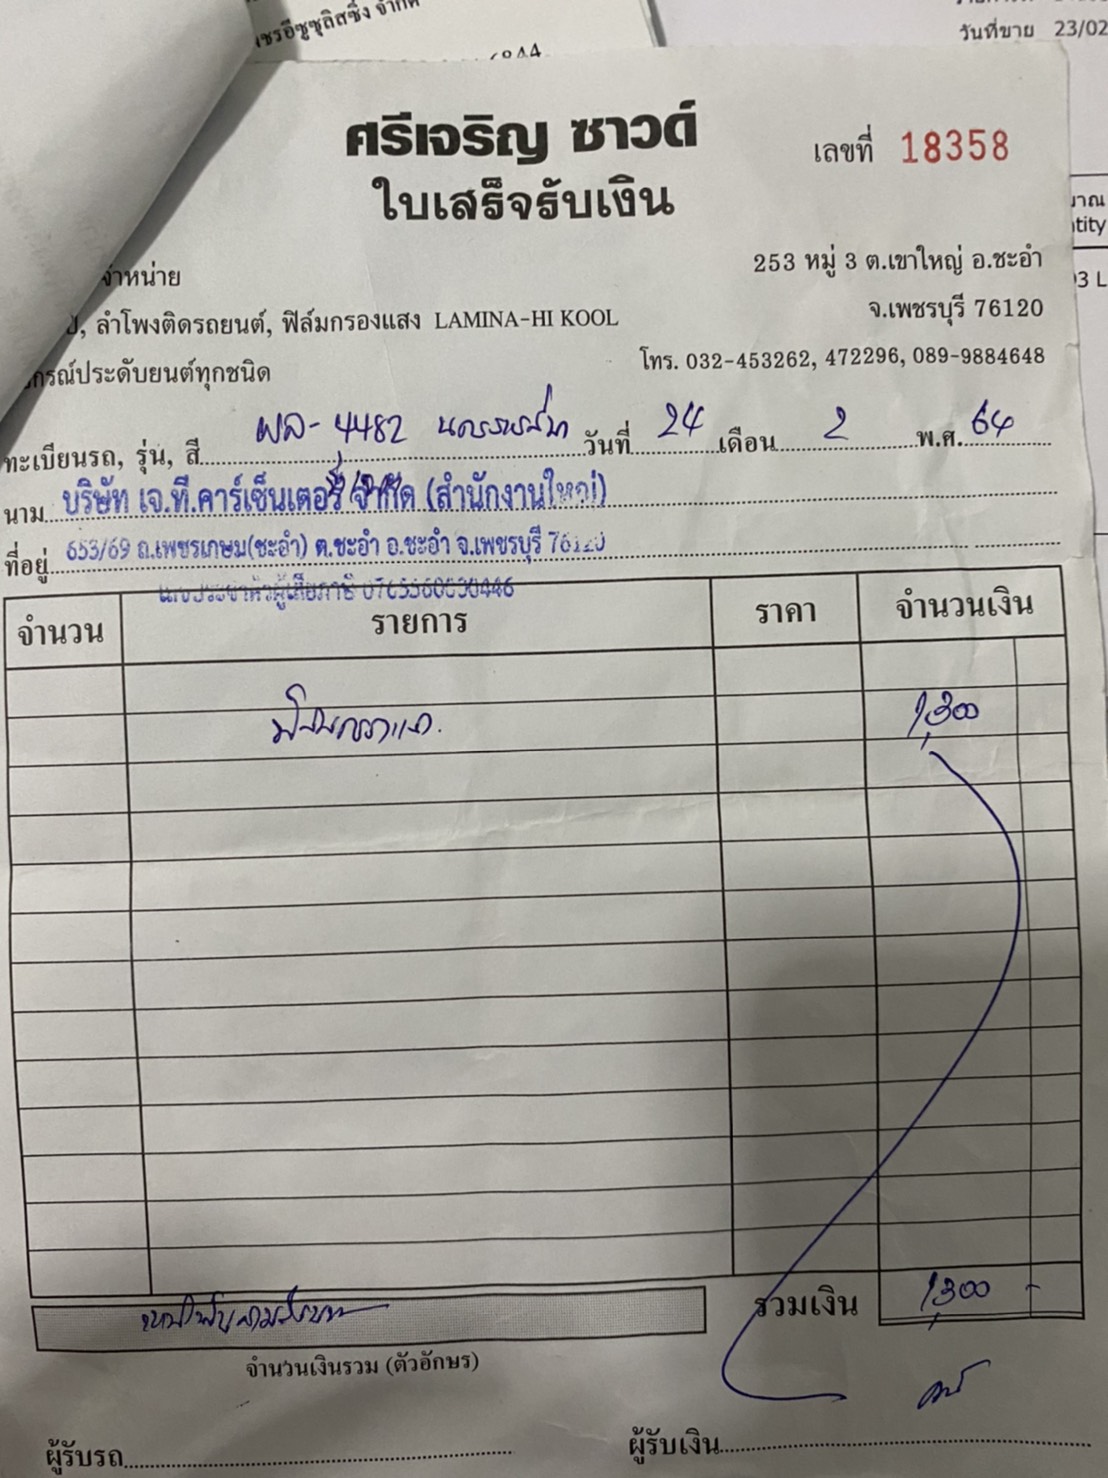 วันที่ขาย 23/02
ศรีเจริญ ซาวด์
เลขที่ 18358
ใบเสร็จรับเงิน
จำหน่าย
253 หมู่ 3 ต.เขาใหญ่ อ.ชะอำ
ลำโพงติดรถยนต์, ฟิล์มกรองแสง LAMINA-HI KOOL
จ.เพชรบุรี 76120
กรณ์ประดับยนต์ทุกชนิด
โทร. 032-453262, 472296, 089-9884648
ทะเบียนรถ, รุ่น, สี 4482 วันที่ 24 เดือน 2 พ.ศ. 64
นาม บริษัท เจ.ที.คาร์เซ็นเตอร์ จำกัด (สำนักงานใหญ่)
ที่อยู่ 653/69 ถ.เพชรเกษม(ชะอำ) ต.ชะอำ อ.ชะอำ จ.เพชรบุรี 76120
จำนวน รายการ ราคา จำนวนเงิน
1,300
รวมเงิน 1,300 -
จำนวนเงินรวม (ตัวอักษร)
ผู้รับรถ
ผู้รับเงิน